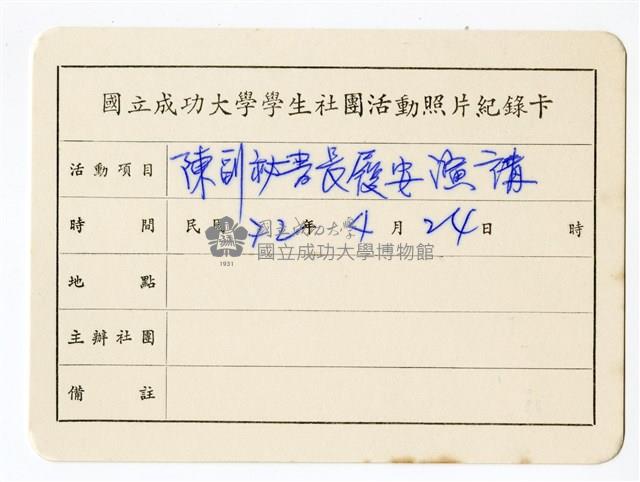 國立成功大學學生社團活動照片紀錄卡
活動項目 陳副祕書長履安演講
時間 民國72年4月24日 時
國立成功大學
國立成功大學博物館
1931
地點
主辦社團
備註